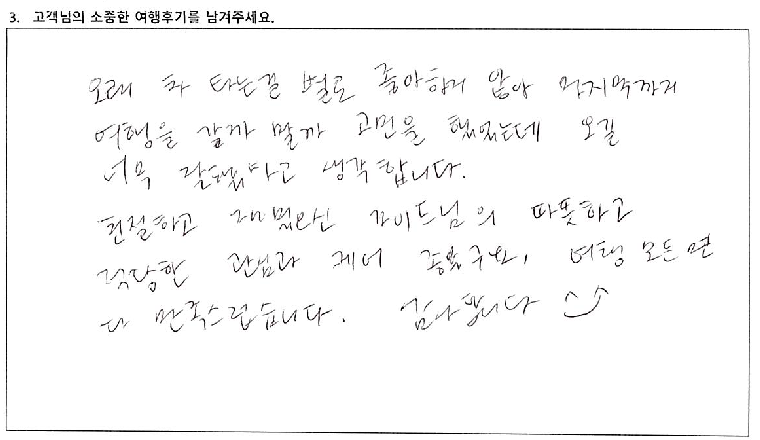 3. 고객님의 소중한 여행후기를 남겨주세요.
오래 차 타는걸 별로 좋아하지 않아 마지막까지
여행을 갈까 말까 고민을 했었는데 오길
너무 잘했다고 생각합니다.
친절하고 재미있으신 가이드님의 따뜻하고
적당한 관심과 케어 좋았구요, 여행 모든면
다 만족스럽습니다. 감사합니다